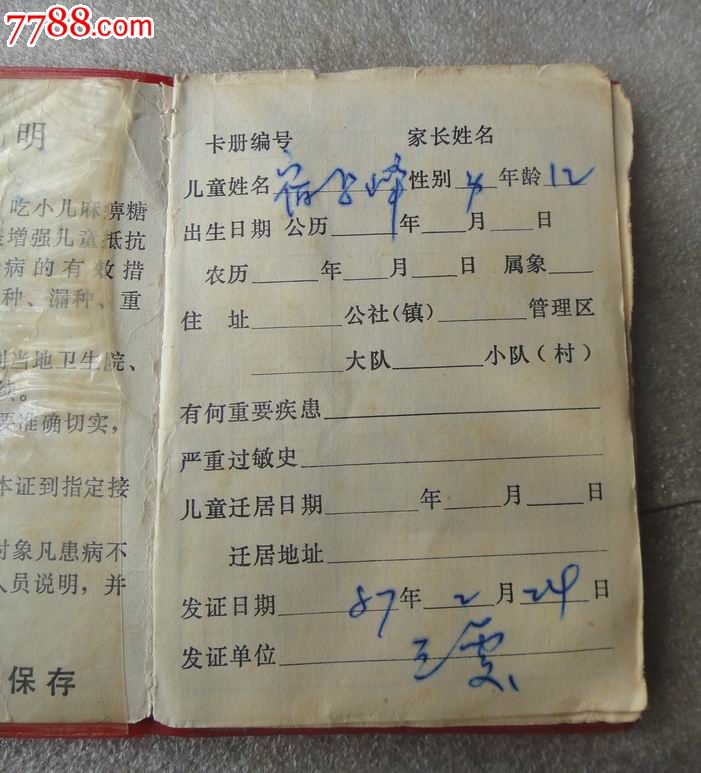 7788.com
明
吃小儿麻痹糖
增强儿童抵抗
病的有效措
种、漏种、重
当地卫生院、
。
要准确切实,
本证到指定接
对象凡患病不
人员说明,并
保存
卡册编号 家长姓名
儿童姓名 峰 性别 年龄 12
出生日期 公历 年 月 日
农历 年 月 日 属象
住 址 公社(镇) 管理区
大队 小队(村)
有何重要疾患
严重过敏史
儿童迁居日期 年 月 日
迁居地址
发证日期 87 年 2 月 24 日
发证单位